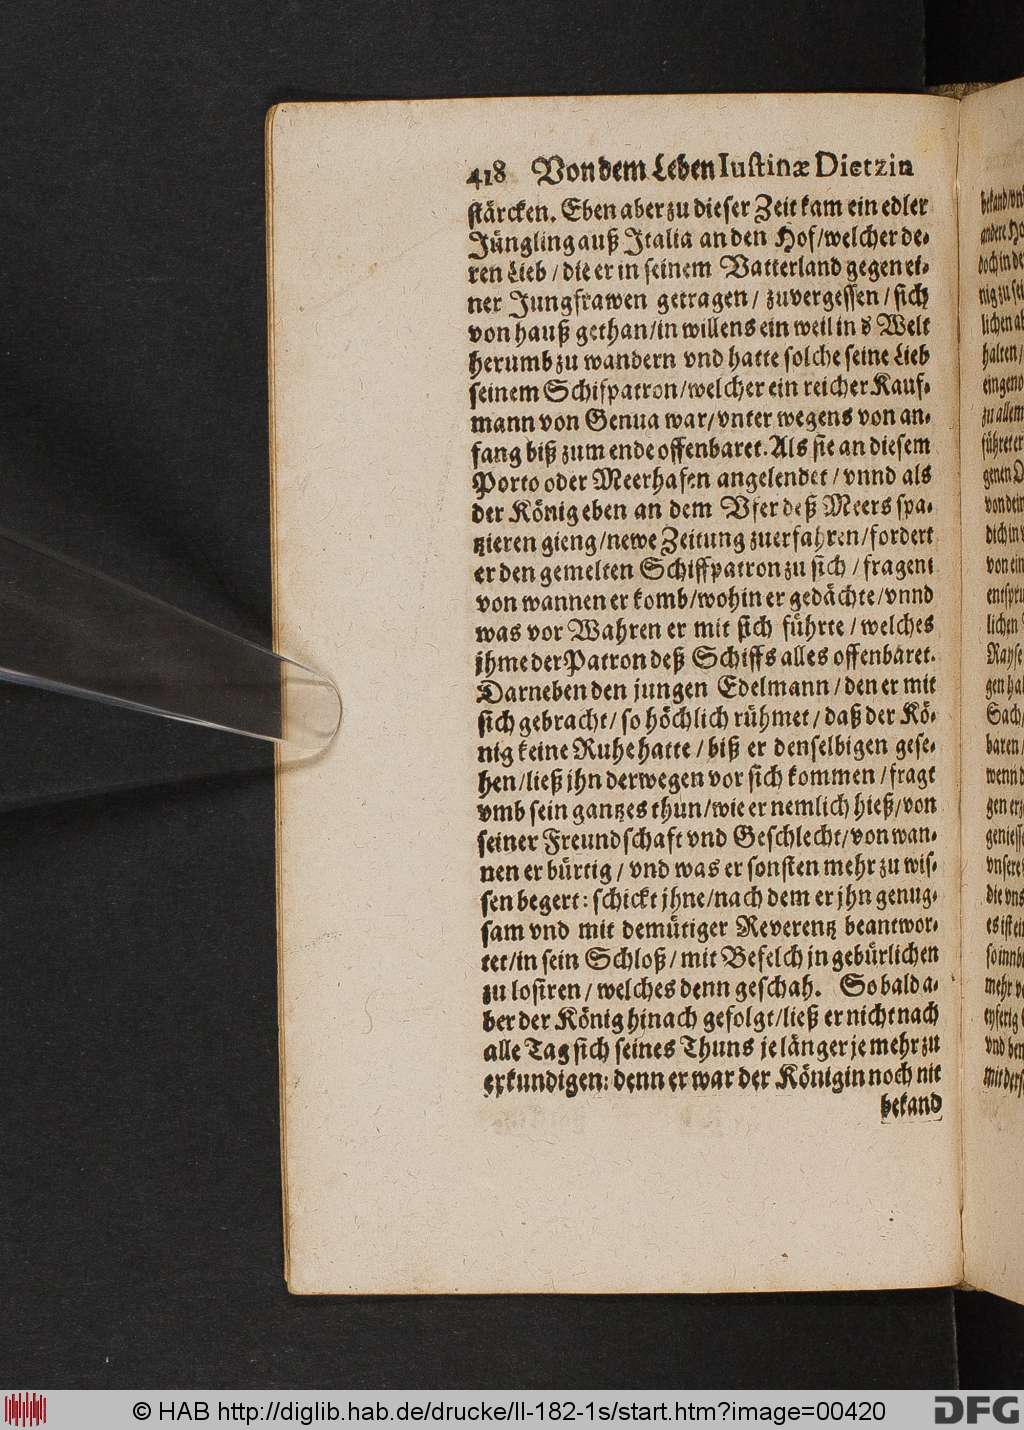 418 Von dem Leben Iustinæ Dietzin
stärcken. Eben aber zu dieser Zeit kam ein edler
Jüngling auß Italia an den Hof/welcher de-
ren Lieb/die er in seinem Vatterland gegen ei-
ner Jungfrawen getragen/zuvergessen/sich
von hauß gethan/in willens ein weil in d Welt
herumb zu wandern vnd hatte solche seine Lieb
seinem Schifpatron/welcher ein reicher Kauf-
mann von Genua war/vnter wegens von an-
fang biß zum ende offenbaret. Als sie an diesem
Porto oder Meerhafen angelendet/vnnd als
der König eben an dem Vfer deß Meers spa-
tzieren gieng/newe Zeitung zuerfahren/fordert
er den gemelten Schiffpatron zu sich/fragent
von wannen er komb/wohin er gedächte/vnnd
was vor Wahren er mit sich führte/welches
jhme der Patron deß Schiffs alles offenbaret.
Darneben den jungen Edelmann/den er mit
sich gebracht/so höchlich rühmet/daß der Kö-
nig keine Ruhe hatte/biß er denselbigen gese-
hen/ließ jhn derwegen vor sich kommen/fragt
vmb sein gantzes thun/wie er nemlich hieß/von
seiner Freundschaft vnd Geschlecht/von wan-
nen er bürtig/vnd was er sonsten mehr zu wis-
sen begert: schickt jhne/nach dem er jhn genug-
sam vnd mit demütiger Reverentz beantwor-
tet/in sein Schloß/mit Befelch jn gebürlichen
zu losiren/welches denn geschah. So bald a-
ber der König hinach gefolgt/ließ er nicht nach
alle Tag sich seines Thuns je länger je mehr zu
erkundigen: denn er war der Königin noch nit
bekand
© HAB http://diglib.hab.de/drucke/ll-182-1s/start.htm?image=00420
DFG